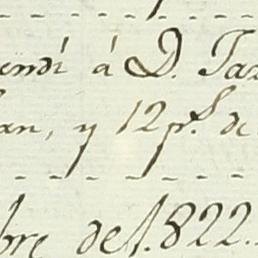 endí á D. Ta
an, y 12 p.s de
bre del.822.